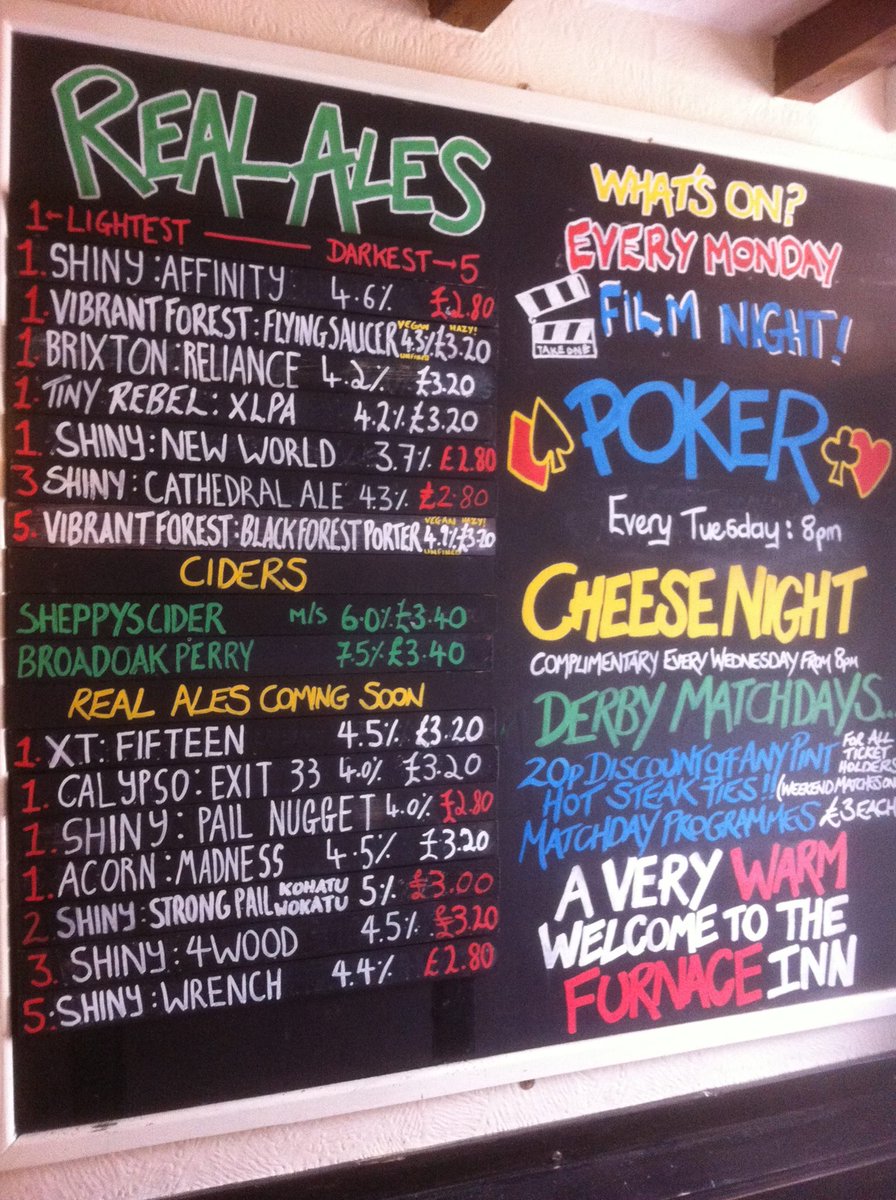 REAL ALES
1←LIGHTEST — DARKEST→5
1. SHINY: AFFINITY 4.6% £2.80
1. VIBRANT FOREST: FLYING SAUCER VEGAN HAZY! UNFINED 4.3% £3.20
1. BRIXTON: RELIANCE 4.2% £3.20
1. TINY REBEL: XLPA 4.2% £3.20
1. SHINY: NEW WORLD 3.7% £2.80
3 SHINY: CATHEDRAL ALE 4.3% £2.80
5. VIBRANT FOREST: BLACK FOREST PORTER VEGAN HAZY! UNFINED 4.9% £3.20
CIDERS
SHEPPYS CIDER M/S 6.0% £3.40
BROADOAK PERRY 7.5% £3.40
REAL ALES COMING SOON
1. XT: FIFTEEN 4.5% £3.20
1. CALYPSO: EXIT 33 4.0% £3.20
1. SHINY: PAIL NUGGET 4.0% £2.80
1. ACORN: MADNESS 4.5% £3.20
2 SHINY: STRONG PAIL KOHATU WOKATU 5% £3.00
3. SHINY: 4WOOD 4.5% £3.20
5. SHINY: WRENCH 4.4% £2.80
WHAT'S ON?
EVERY MONDAY
FILM NIGHT!
TAKE ONE
POKER
Every Tuesday: 8pm
CHEESE NIGHT
COMPLIMENTARY EVERY WEDNESDAY FROM 8pm
DERBY MATCHDAYS
20p DISCOUNT OFF ANY PINT FOR ALL TICKET HOLDERS
HOT STEAK PIES!! (WEEKEND MATCHES ON
MATCHDAY PROGRAMMES £3 EACH
A VERY WARM
WELCOME TO THE
FURNACE INN